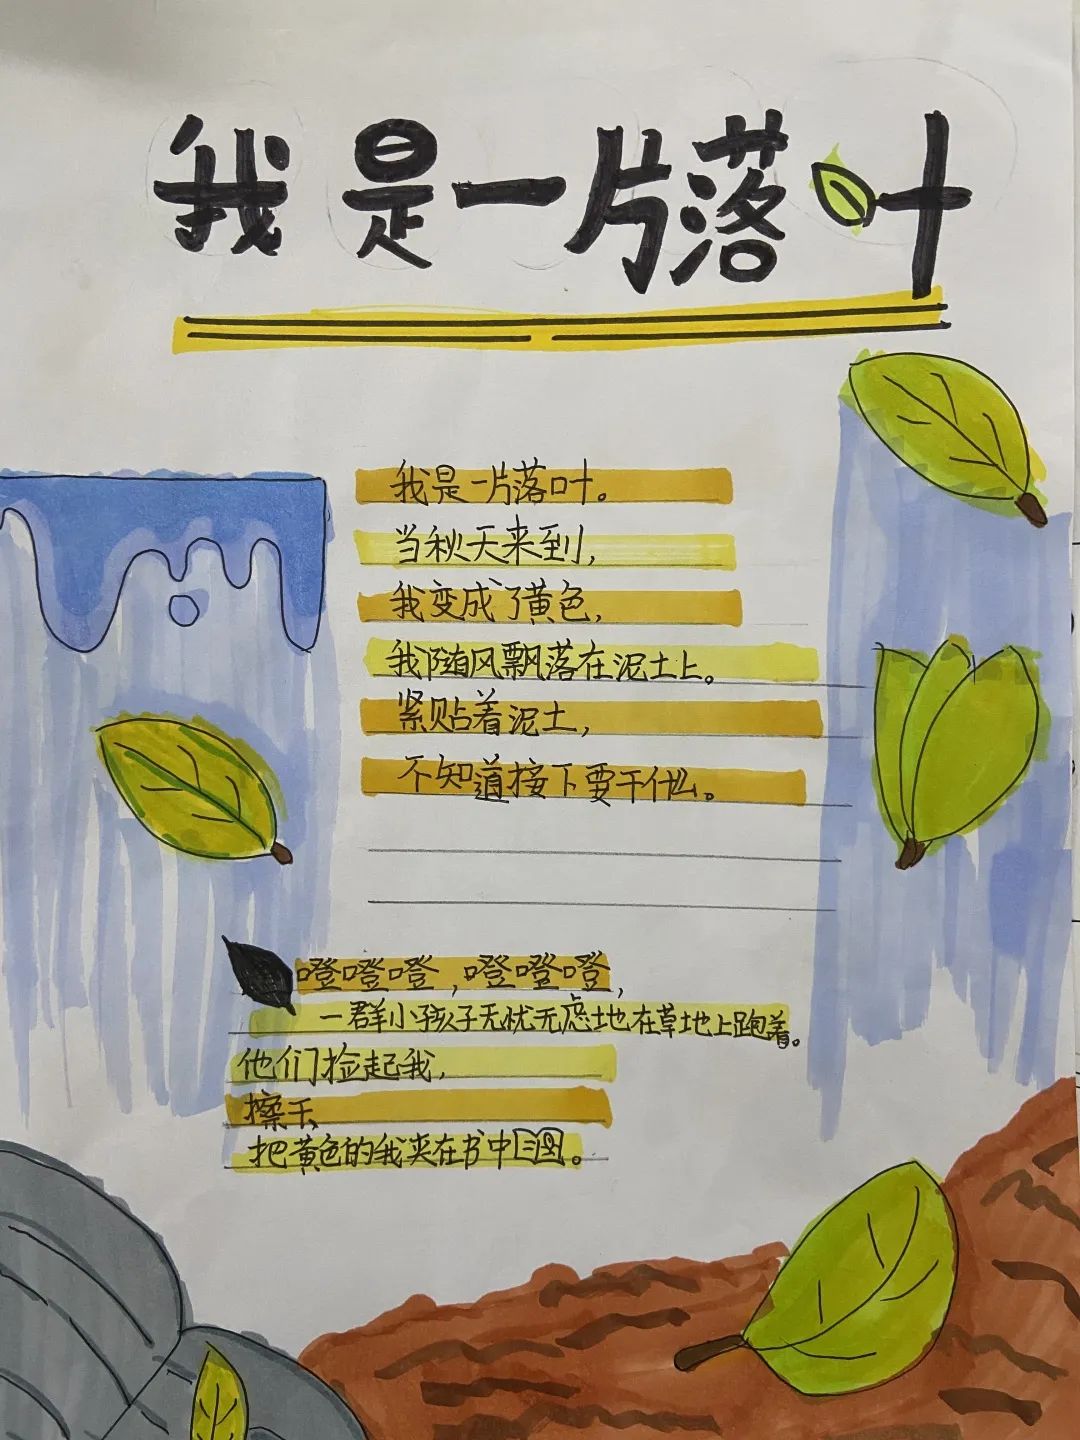 我是一片落叶
我是一片落叶。
当秋天来到,
我变成了黄色,
我随风飘落在泥土上。
紧贴着泥土,
不知道接下要干什么。
噔噔噔,噔噔噔,
一群小孩子无忧无虑地在草地上跑着。
他们捡起我,
擦干,
把黄色的我夹在书中。